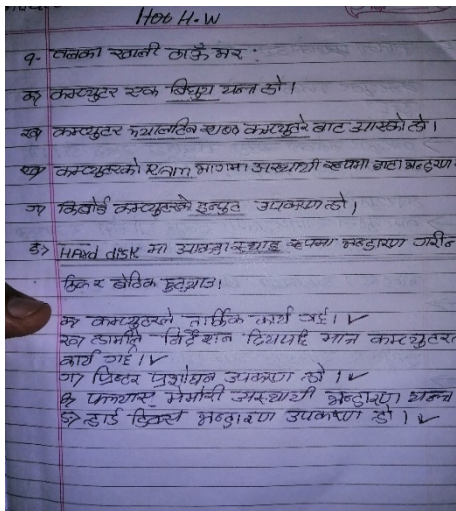 Hot H.W
१- तलका खाली ठाउँ भर :
क) कम्प्युटर एक विधुत यन्त्र हो ।
ख) कम्प्युटर ल्याटिन शब्द कम्प्युटरे बाट आएको हो ।
कम्प्युटरको RAM भागमा अस्थायी रूपमा डाटा भन्डारण
ग) किबोर्ड कम्प्युटरको इन्पुट उपकरण हो ।
ङ) Hard disk मा आंकडा स्थाइ रूपमा भण्डारण गरीन
ठिक र बेठिक छुट्याउ ।
क) कम्प्युटरले तार्किक कार्य गर्छ । ✓
ख) हामीले निर्देशन दिएपछि मात्र कम्प्युटरल
कार्य गर्छ । ✓
ग) प्रिन्टर प्रशोधन उपकरण हो । ✓
मेमोरी अस्थायी भन्डारण यन्त्र
ङ) हार्ड डिक्स भन्डारण उपकरण हो । ✓